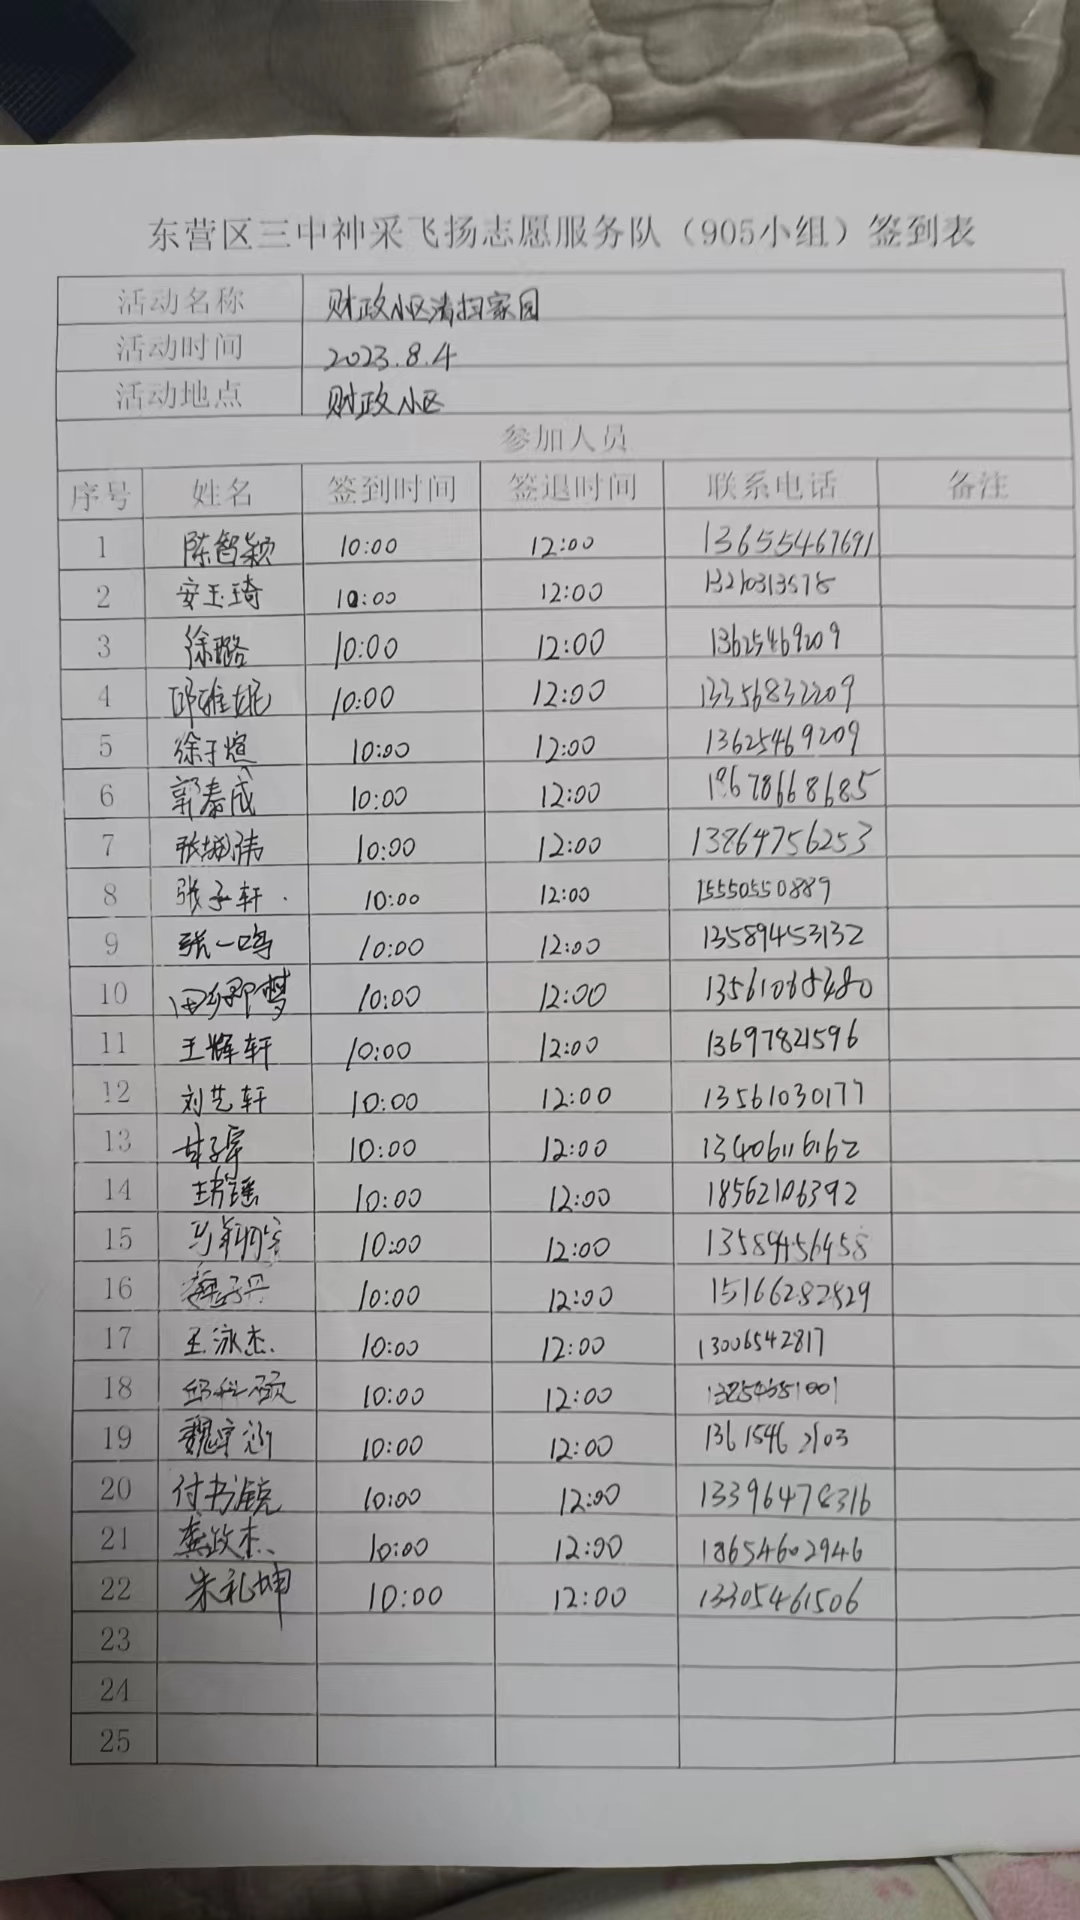 东营区三中神采飞扬志愿服务队（905小组）签到表
活动名称 财政小区清扫家园
活动时间 2023.8.4
活动地点 财政小区
参加人员
序号 姓名 签到时间 签退时间 联系电话 备注
1 陈智颖 10:00 12:00 13655467691
2 安玉琦 10:00 12:00
3 徐璐 10:00 12:00 13625469209
4 邱雅妮 10:00 12:00 13356832209
5 徐于煊 10:00 12:00 13625469209
6 郭泰成 10:00 12:00 19678668685
7 10:00 12:00 13864756253
8 张子轩 10:00 12:00 15550550889
9 张一鸣 10:00 12:00 13589453132
10 10:00 12:00
11 王辉轩 10:00 12:00 13697821596
12 刘艺轩 10:00 12:00 13561030177
13 10:00 12:00 13406116162
14 10:00 12:00 18562106392
15 10:00 12:00 13589456458
16 10:00 12:00 15166282829
17 王泳杰 10:00 12:00 13006542817
18 10:00 12:00
19 魏宇涵 10:00 12:00 13615462103
20 10:00 12:00 13396478316
21 龚政杰 10:00 12:00 18654602946
22 朱礼坤 10:00 12:00 13305461506
23
24
25